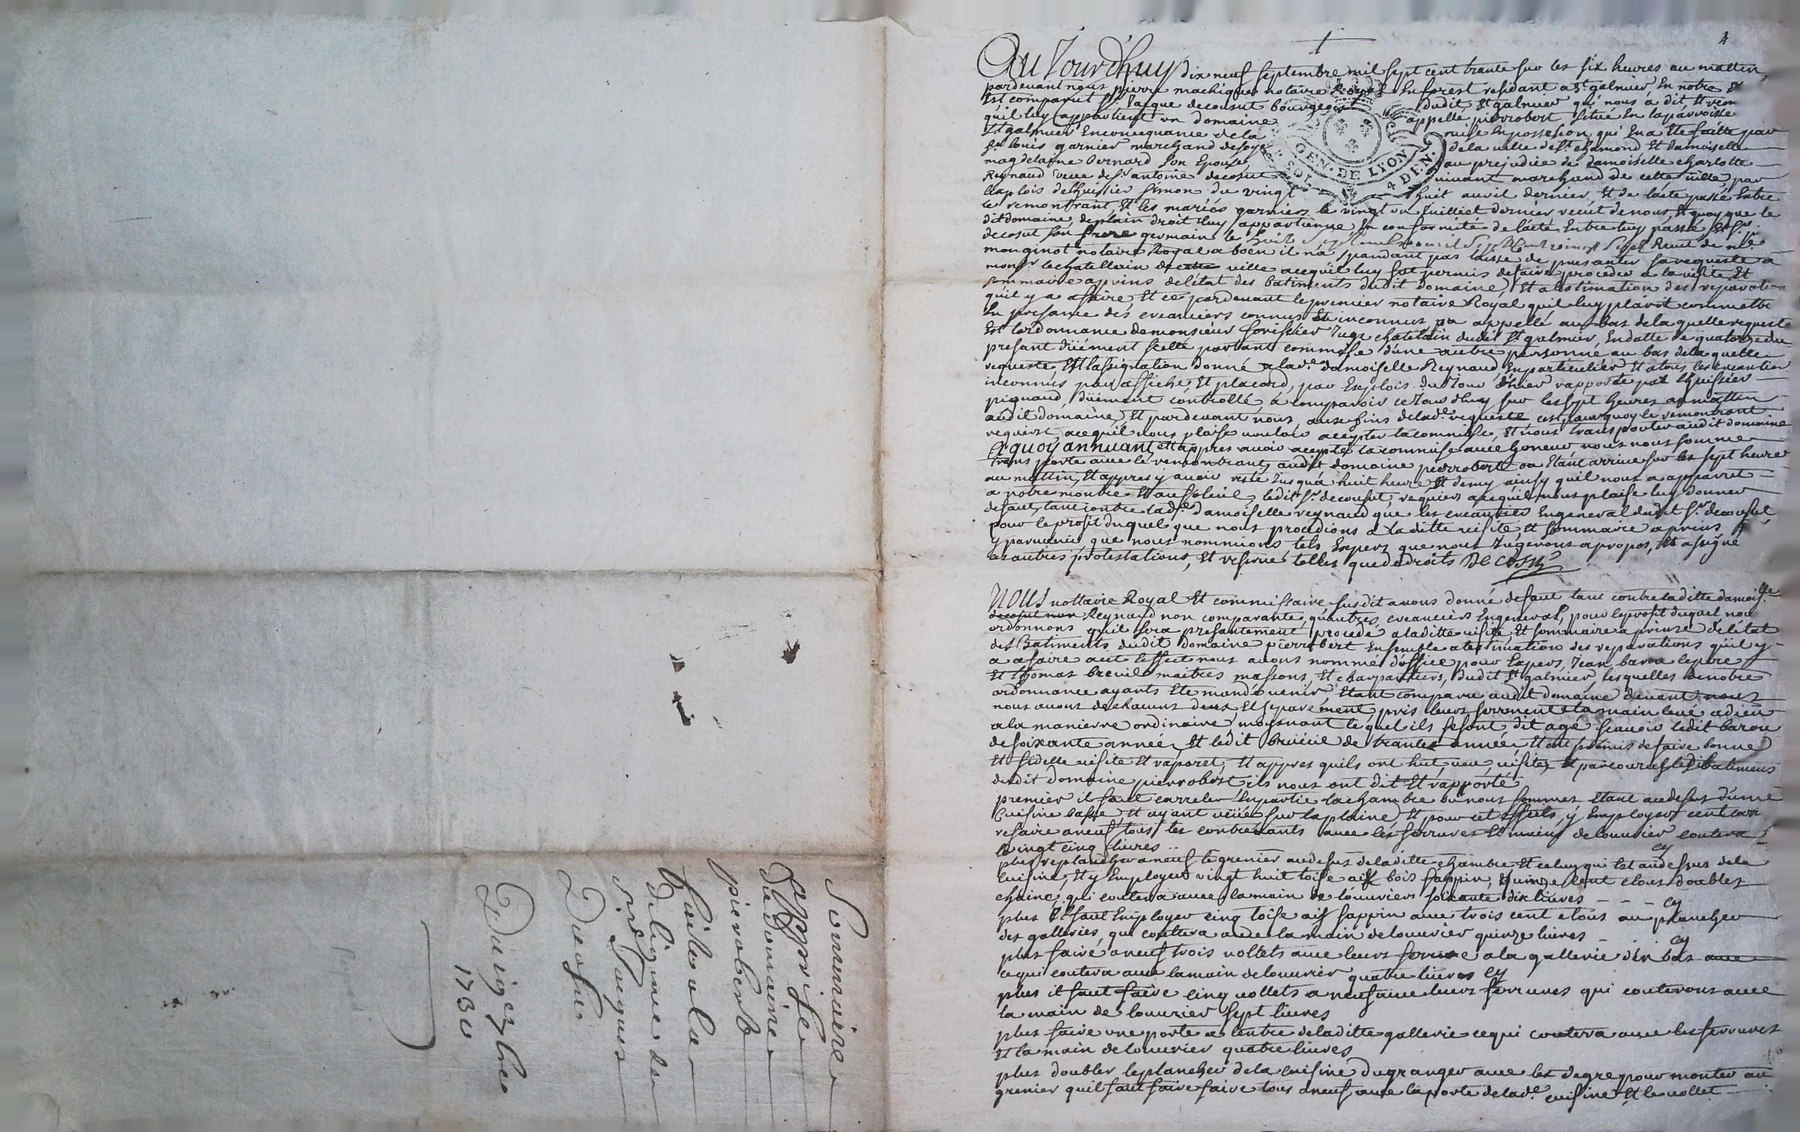 4
Aujourd'huy dix neuf septembre mil sept cent trante sur les six heures au mattin
pardevant nous pierre notaire Royal En forest residant a St galmier En notre
Est comparut Sr Jacque decousut bourgeois dudit St galmier qui nous à dit,
qu'il luy appartient un domaine appellé pierrobert situé En la parroisse
St galmier En consequance de la prise En possesion qui En a Eté faitte par
Sr louis garnier marchand de soye de la ville de St chamond Et damoiselle
magdelaine Bernard son Epouse au prejudice de damoiselle charlotte
Reynaud veuve de Sr antoine decousut vivant marchand de cette ville, par
Exploit de l'huissier simon du vingt huit avril dernier, Et de l'acte passé Entre
le remontrant, Et les mariés garniers le vingt un Juilliet dernier receu de nous, Et quoy que le
dit domaine de plain droit luy appartienne En conformité de l'acte Entre luy passé Et Sr
decosut son frere germain le
monginot notaire Royal a boën il n'a pandant pas laissé de presanter sa requeste a
monsr le chatellain de cette ville acequil luy fut permis de faire proceder a la visite Et
sommaire aprins de l'état des batiments dudit domaine, Et a l'estimation des reparations
qu'il y a afaire Et ce pardevant le premier notaire Royal quil luy plairoit commettre
En presance des creanciers connus Et inconnus ou appellé au bas de la quelle requeste
Est l'ordonnance de monsieur Juge chatelain dudit St galmier, En datte du quatorze du
presant düement scellé portant commise d'une autre personne au bas de la quelle
requeste Est l'assignation donné a lade damoiselle Reynaud En particulier Et a tous les creancier
inconnus par affiche, Et placard, par Exploits du Jour d'hier rapporté par l'huissier
pignaud, düement controllé a comparoir ce Jourd'huy sur les sept heures au mattin
audit domaine, Et pardevant nous aux fins de lade requeste c'est pourquoy le remontrant
requiert acequil nous plaise vouloir accepter la commise, Et nous transporter audit domaine
A quoy annuant Et appres avoir accepté la commise avec honeur nous nous somme
transporté avec le remontrant, audit domaine pierrobert ou Etant arrivé sur les sept heure
au mattin, Et appres y avoir resté Jusqua huit heure Et demy ainsy quil nous a apparut
a notre montre Et au soleil, ledit Sr decousut requiert acequil nous plaise luy donner
defaut, tant contre lade damoiselle reynaud que les creanciers En general dudit Sr decousut
pour le profit duquel que nous procedions a laditte visite Et sommaire aprins
y parvenir que nous nommions tels Expers que nous Jugerons apropos, Et a signé
les autres protestations, Et reserve telles que de droits Decosut
Nous nottaire Royal Et commissaire susdit avons donné defaut tant contre laditte damoiselle
Reynaud non comparante, qu'autres creanciers En general, pour le profit duquel nous
ordonnons quil sera presantement procedé a laditte visite, Et sommaire aprinse de l'état
des Batiments dudit domaine pierrobert Ensemble a l'estimation des reparations qu'il y
a afaire a cet Effect nous avons nommé d'office pour Expers, Jean barou le pere
Et thomas breuil maitres massons, Et charpantiers, dudit St galmier, lesquelles de notre
ordonnance ayants Eté mandé venir, Etant comparu audit domaine devant nous
nous avons de chacuns deux Et separement pris leurs serment la main levé a dieu
a la manierre ordinaire moyenant lequel ils se sont dit agé scavoir ledit barou
de soixante année, Et ledit breuil de trante année, Et ont promis de faire bonne
Et fidelle visite Et raport, Et appres quils ont hut veu, visité, Et parcourus les dit batiments
dudit domaine pierrobert ils nous ont dit Et rapporté
premier il faut carreler En partie la chambre ou nous sommes Etant au dessus d'une
cuisine basse Et ayant veüe sur la plaine, Et pour cet Effects, y Employer cent
refaire a neuf tous les contrevants avec les ferrures Et mains de louvrier coutera
vingt cinq livres
plus replancher a neuf le grenier au desus de laditte chambre Et celuy qui Est au dessus de la
cuisine, Et y Employer vingt huit toise aix bois sappin, Et cent clous doubles
chaine, qui coutera avec la main de louvriers soixante dix livres
plus Il faut Employer cinq toise aix sappin avec trois cent clous au plancher
des galleries, qui coutera avec la main de louvrier quinze livres
plus faire a neuf trois vollets avec leurs ferrure a la gallerie d'en bas avec
ce qui coutera avec la main de louvrier quatre livres
plus il faut faire cinq vollets a neuf avec leurs ferrures qui couterons avec
la main de louvrier sept livres
plus faire une porte a l'entré de laditte gallerie ce qui coutera avec les ferrures
Et la main de louvrier quatre livres
plus doubler le plancher de la cuisine du granger avec les degré pour monter au
grenier quil faut faire faire tous a neuf, avec la porte de lade cuisine, Et le vollet
GEN. DE LYON
4 DEN.
Sommaire
Apprise
du domaine
pierobert
faite a la
diligence de
Sr Jaques
Decosut
Du 19 7bre
1730